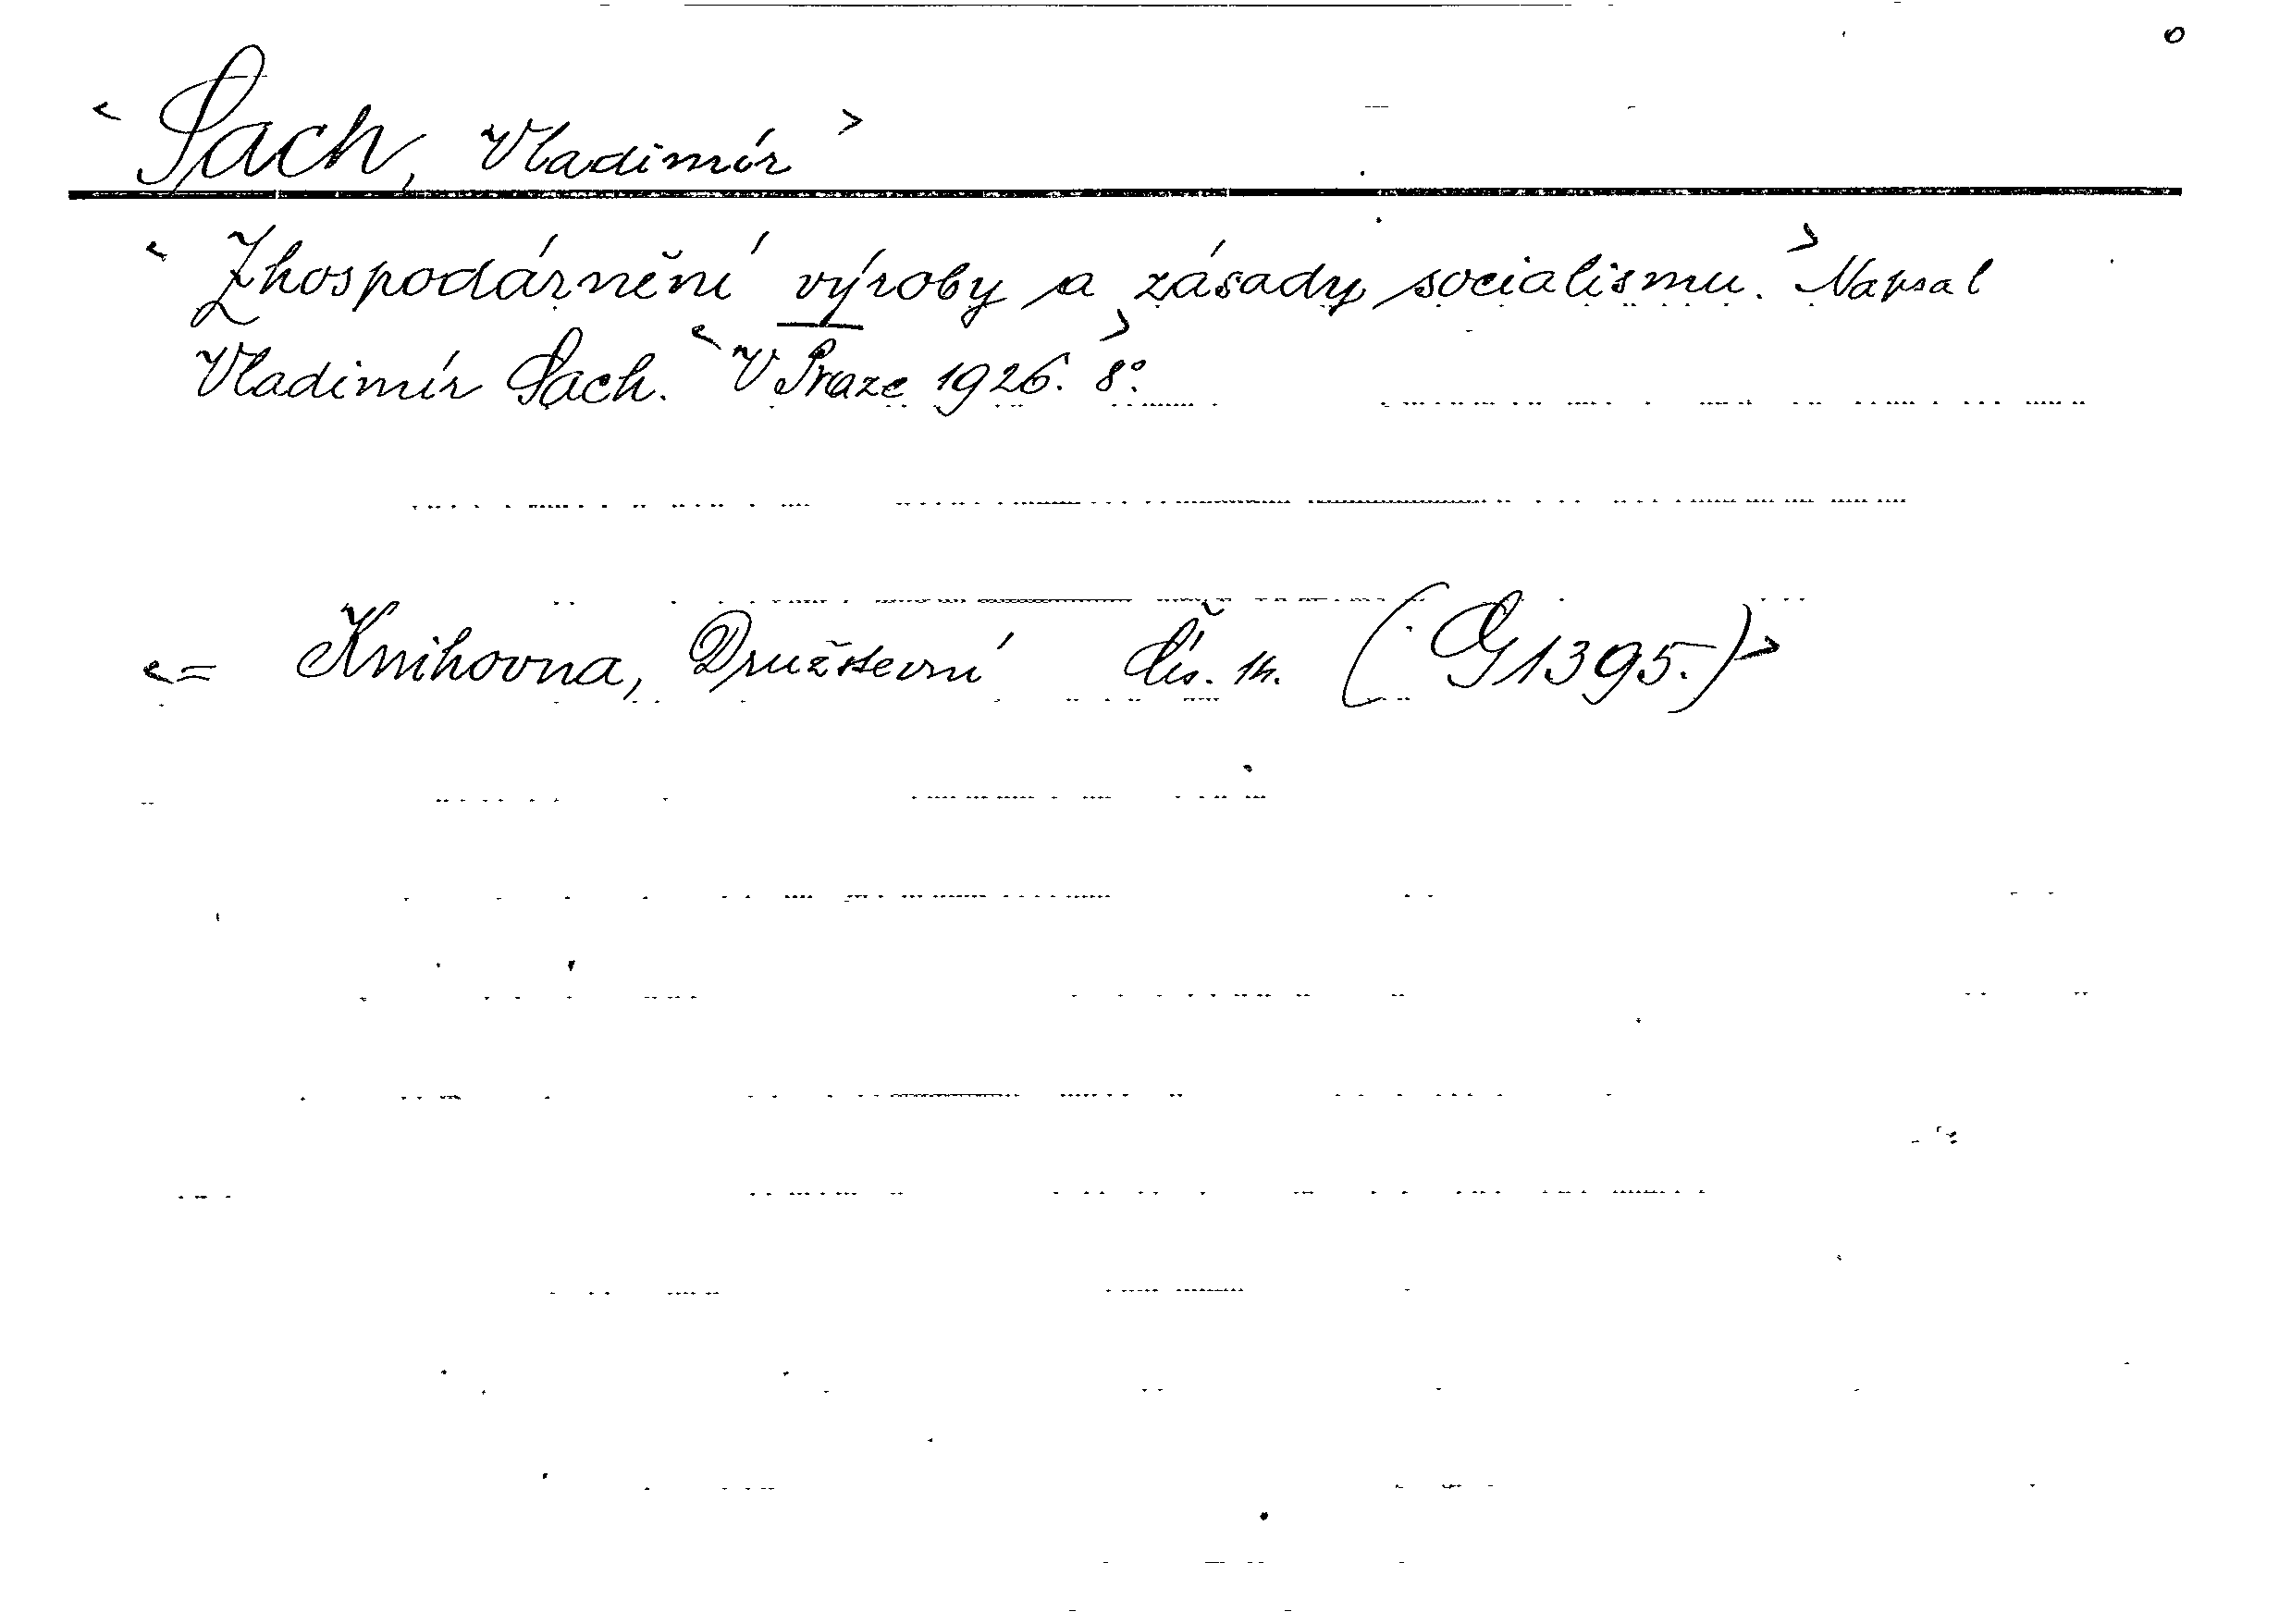 < Pach, Vladimír >
< Zhospodárnění výroby a zásady socialismu. > Napsal
Vladimír Pach. < V Praze 1926. > 8°.
< = Knihovna, Družstevní Čís. 14. (G 1395.) >